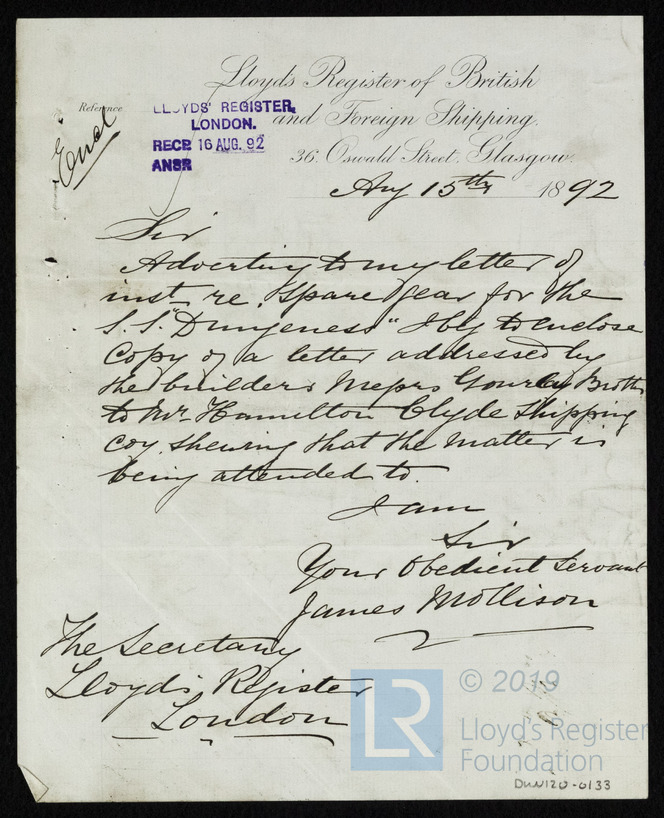 Lloyd's Register of British
and Foreign Shipping.
36, Oswald Street, Glasgow.
Reference
Encl
LLOYDS' REGISTER,
LONDON.
RECD 16 AUG. 92
ANSR
Aug 15th 1892
Sir
Adverting to my letter of
inst re. Spare gear for the
S.S. "Dungeness" I beg to enclose
Copy of a letter addressed by
the builders Messrs Gourlay Broths
to Mr. Hamilton Clyde Shipping
Coy. shewing that the matter is
being attended to.
I am
Sir
Your Obedient Servant
James Mollison
The Secretary
Lloyds Register
London
LR
© 2019
Lloyd's Register
Foundation
DUN120-0133